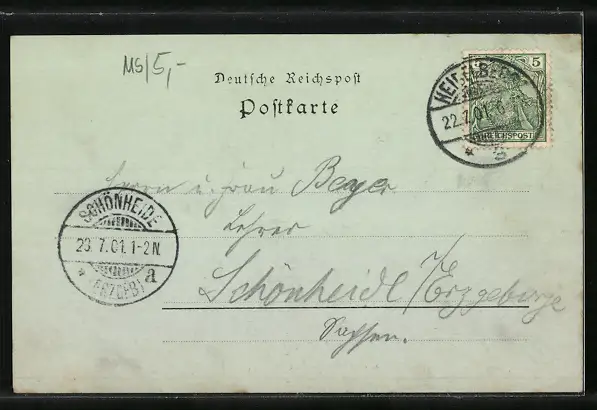 MS/5,-
Deutsche Reichspost
Postkarte
5
REICHSPOST
HEIDELBERG
22.7.01. 6
Herrn u. Frau Beyer
Lehrer
Schönheide /Erzgebirge
Sachsen.
SCHÖNHEIDE
23.7.01. 1-2N.
* (ERZGEB.) a